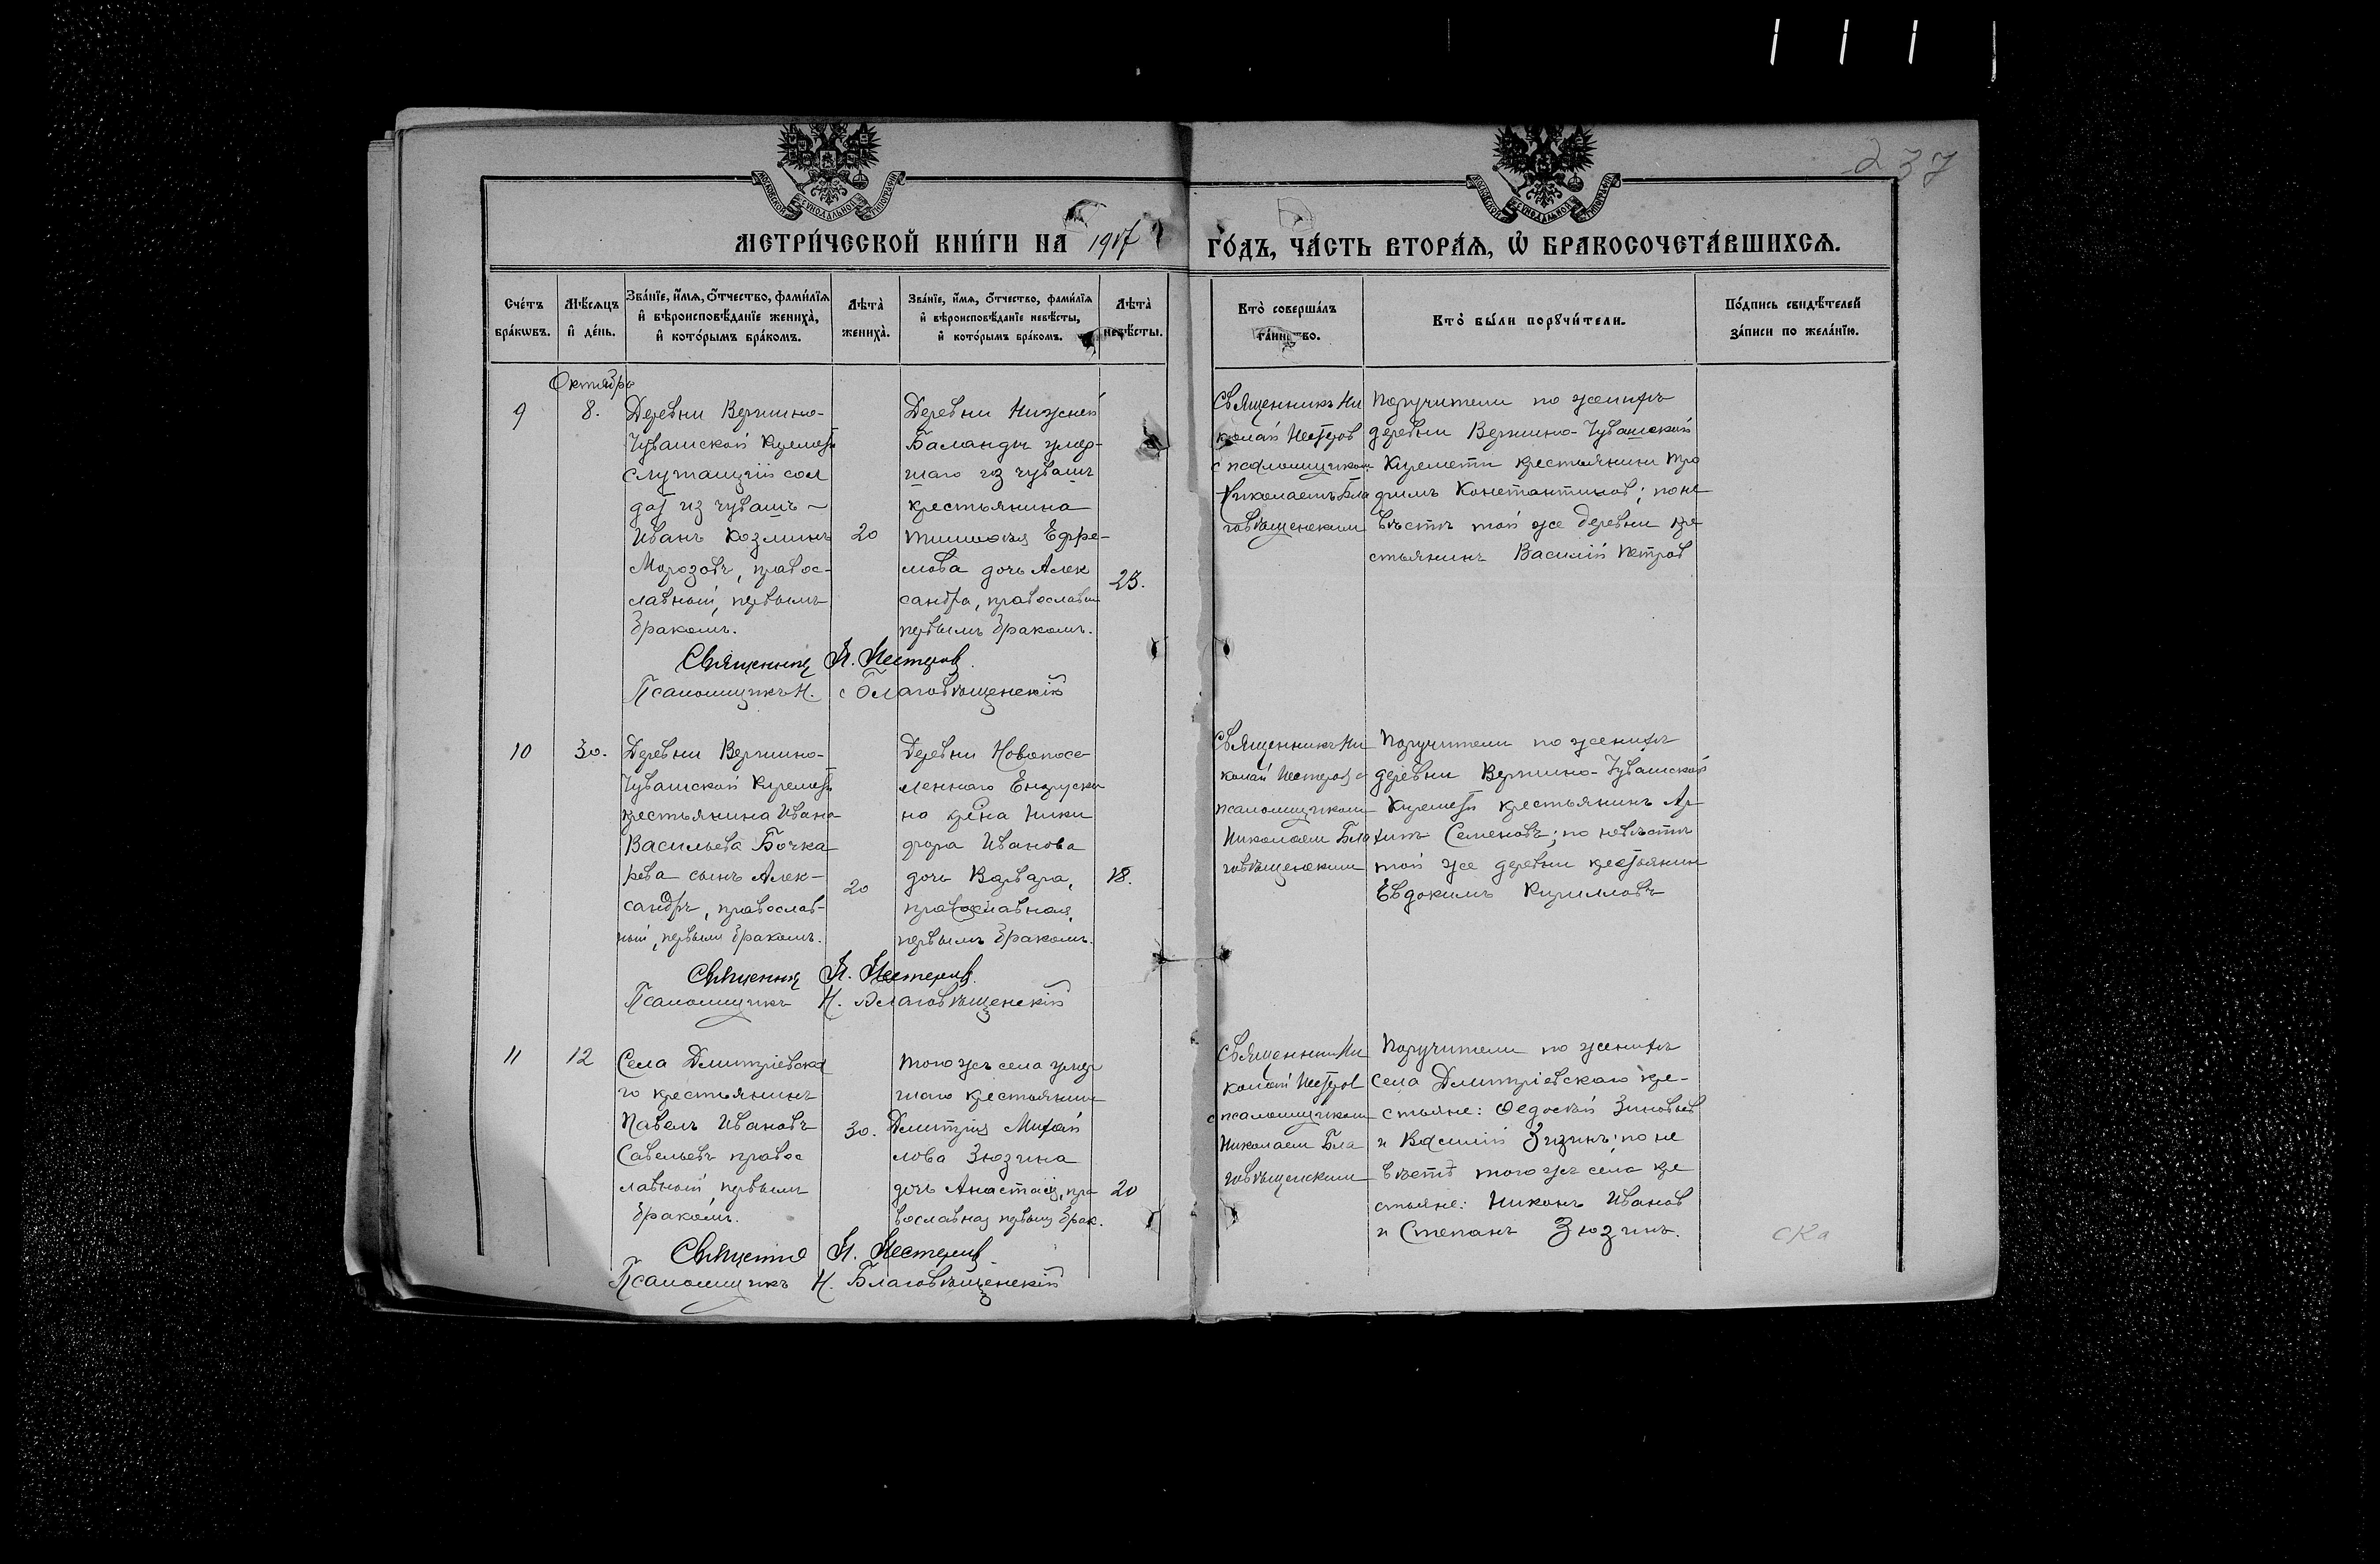 237
МЕТРИ́ЧЕСКОЙ КНИ́ГИ НА 1917 ГО́ДЪ, ЧА́СТЬ ВТОРА́Я, Ѡ҆ БРАКОСОЧЕТА́ВШИХСЯ.
Сче́тъ бра́кѡвъ.
Мѣ́сяцъ и҆ де́нь.
Зва́нїе, и҆́мя, ѻ҆́тчество, фами́лїя и҆ вѣроисповѣ́данїе жениха̀, и҆ кото́рымъ бра́комъ.
Лѣ́та жениха̀.
Зва́нїе, и҆́мя, ѻ҆́тчество, фами́лїя и҆ вѣроисповѣ́данїе невѣ́сты, и҆ кото́рымъ бра́комъ.
Лѣ́та невѣ́сты.
Кто̀ соверша́лъ та́инство.
Кто̀ бы́ли порꙋчи́тели.
По́дпись свидѣ́телей за́писи по жела́нїю.
Октябрь
9
8.
Деревни Вершино-
Чувашской Киремети
служащій сол
дат из чувашъ
Иванъ Козминъ
Морозовъ, правос-
лавный, первымъ
бракомъ.
20
Деревни Нижней
Баланды умер-
шаго из чувашъ
крестьянина
Тимофея Ефре-
мова дочь Алек
сандра, православн
первымъ бракомъ.
23.
Священникъ Ни
колай Нестеров
с псаломщиком
Николаемъ Бла
говѣщенским
Поручители по женихѣ
деревни Вершино-Чувашской
Киремети крестьянин Тро
фимъ Константинов; по не
вѣстѣ той же деревни кре
стьянинъ Василій Петров
Священник Н. Нестеров.
Псаломщикъ Н. Благовѣщенскій
10
30.
Деревни Вершино-
Чувашской Киремети
крестьянина Ивана
Васильева Бочка
рева сынъ Алек-
сандръ, православ-
ный, первымъ бракомъ.
20
Деревни Новопосе
леннаго
на кр-на Ники
фора Иванова
дочь Варвара,
православная,
первымъ бракомъ.
18.
Священникъ Ни
колай Нестеров с
псаломщиком
Николаем Бла
говѣщенским
Поручители по женихѣ
деревни Вершино-Чувашской
Киремети крестьянинъ Ар
хипъ Семеновъ; по невѣстѣ
той же деревни крестьянин
Евдокимъ Кирилловъ
Священник Н. Нестеров.
Псаломщикъ Н. Благовѣщенскій
11
12
Села Дмитріевска
го крестьянинъ
Павелъ Ивановъ
Савельевъ правос
лавный, первымъ
бракомъ.
30.
того же села умер
шаго крестьянин
Дмитрія Михай
лова Зюзина
дочь Анастасія, пра
вославная первым брак.
20
Священник Ни
колай Нестеров
с псаломщиком
Николаем Бла
говѣщенским
Поручители по женихѣ
села Дмитріевскаго кре-
стьяне: Ѳедосѣй Зиновьев
и Василій Зизинъ; по не
вѣстѣ того же села кре
стьяне: Никонъ Иванов
и Степанъ Зюзинъ.
Священник Н. Нестеров
Псаломщикъ Н. Благовѣщенскій